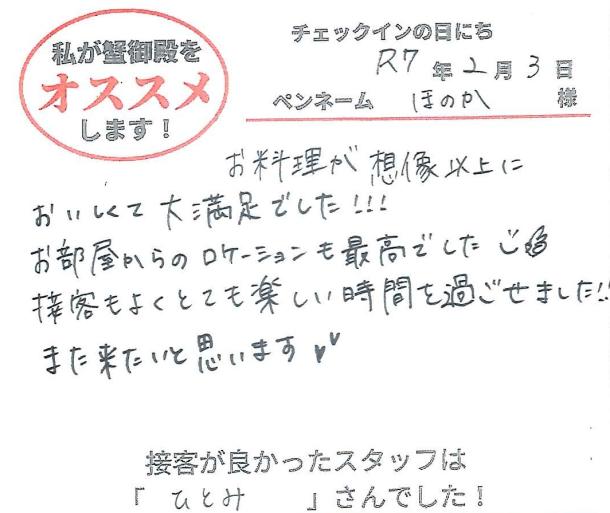 私が蟹御殿を
オススメ
します！
チェックインの日にち
R7年2月3日
ペンネーム ほのか 様
お料理が想像以上に
おいしくて大満足でした!!!
お部屋からのロケーションも最高でした
接客もよくとても楽しい時間を過ごせました!!
また来たいと思います♥♥
接客が良かったスタッフは
「 ひとみ 」さんでした！